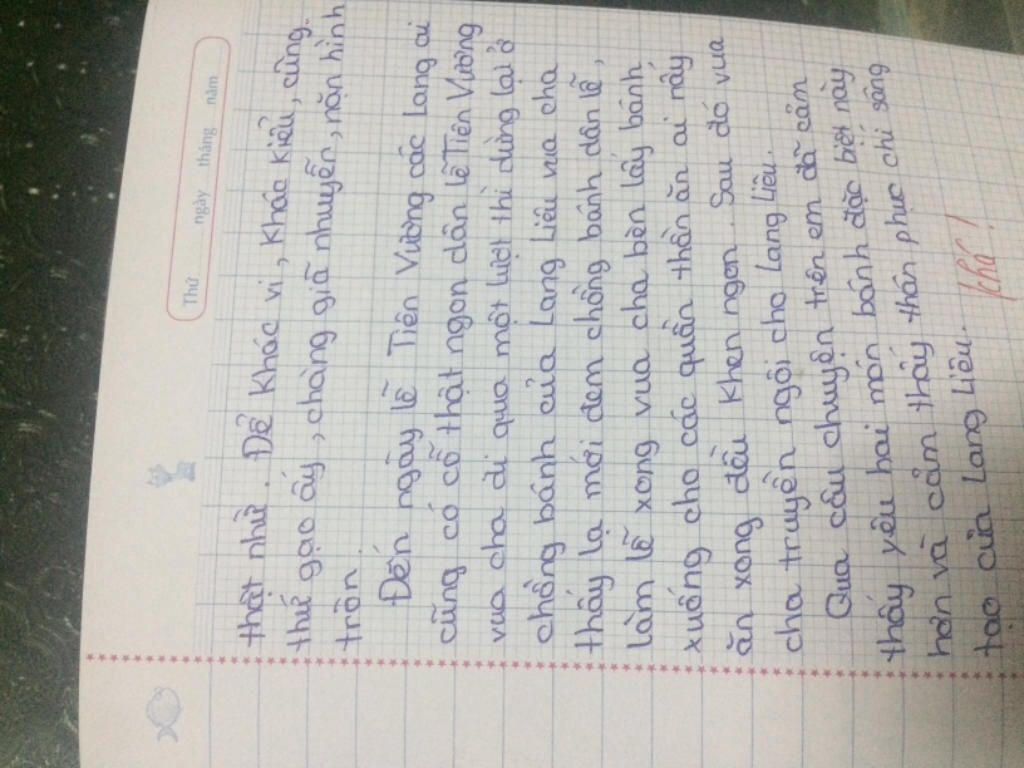 Thứ ngày tháng năm
thật nhừ. Để khác vị, khác kiểu, cũng
thứ gạo ấy, chàng giã nhuyễn, nặn hình
tròn.
Đến ngày lễ Tiên Vương các lang ai
cũng có cỗ thật ngon dân lễ Tiên Vương
vua cha đi qua một lượt thì dừng lại ở
chồng bánh của Lang Liêu vua cha
thấy lạ mới đem chồng bánh dân lễ,
làm lễ xong vua cha bèn lấy bánh
xuống cho các quần thần ăn ai nấy
ăn xong đều khen ngon. Sau đó vua
cha truyền ngôi cho Lang Liêu.
Qua câu chuyện trên em đã cảm
thấy yêu hai món bánh đặc biệt này
hơn và cảm thấy thán phục chí sáng
tạo của Lang Liêu.
Khá!